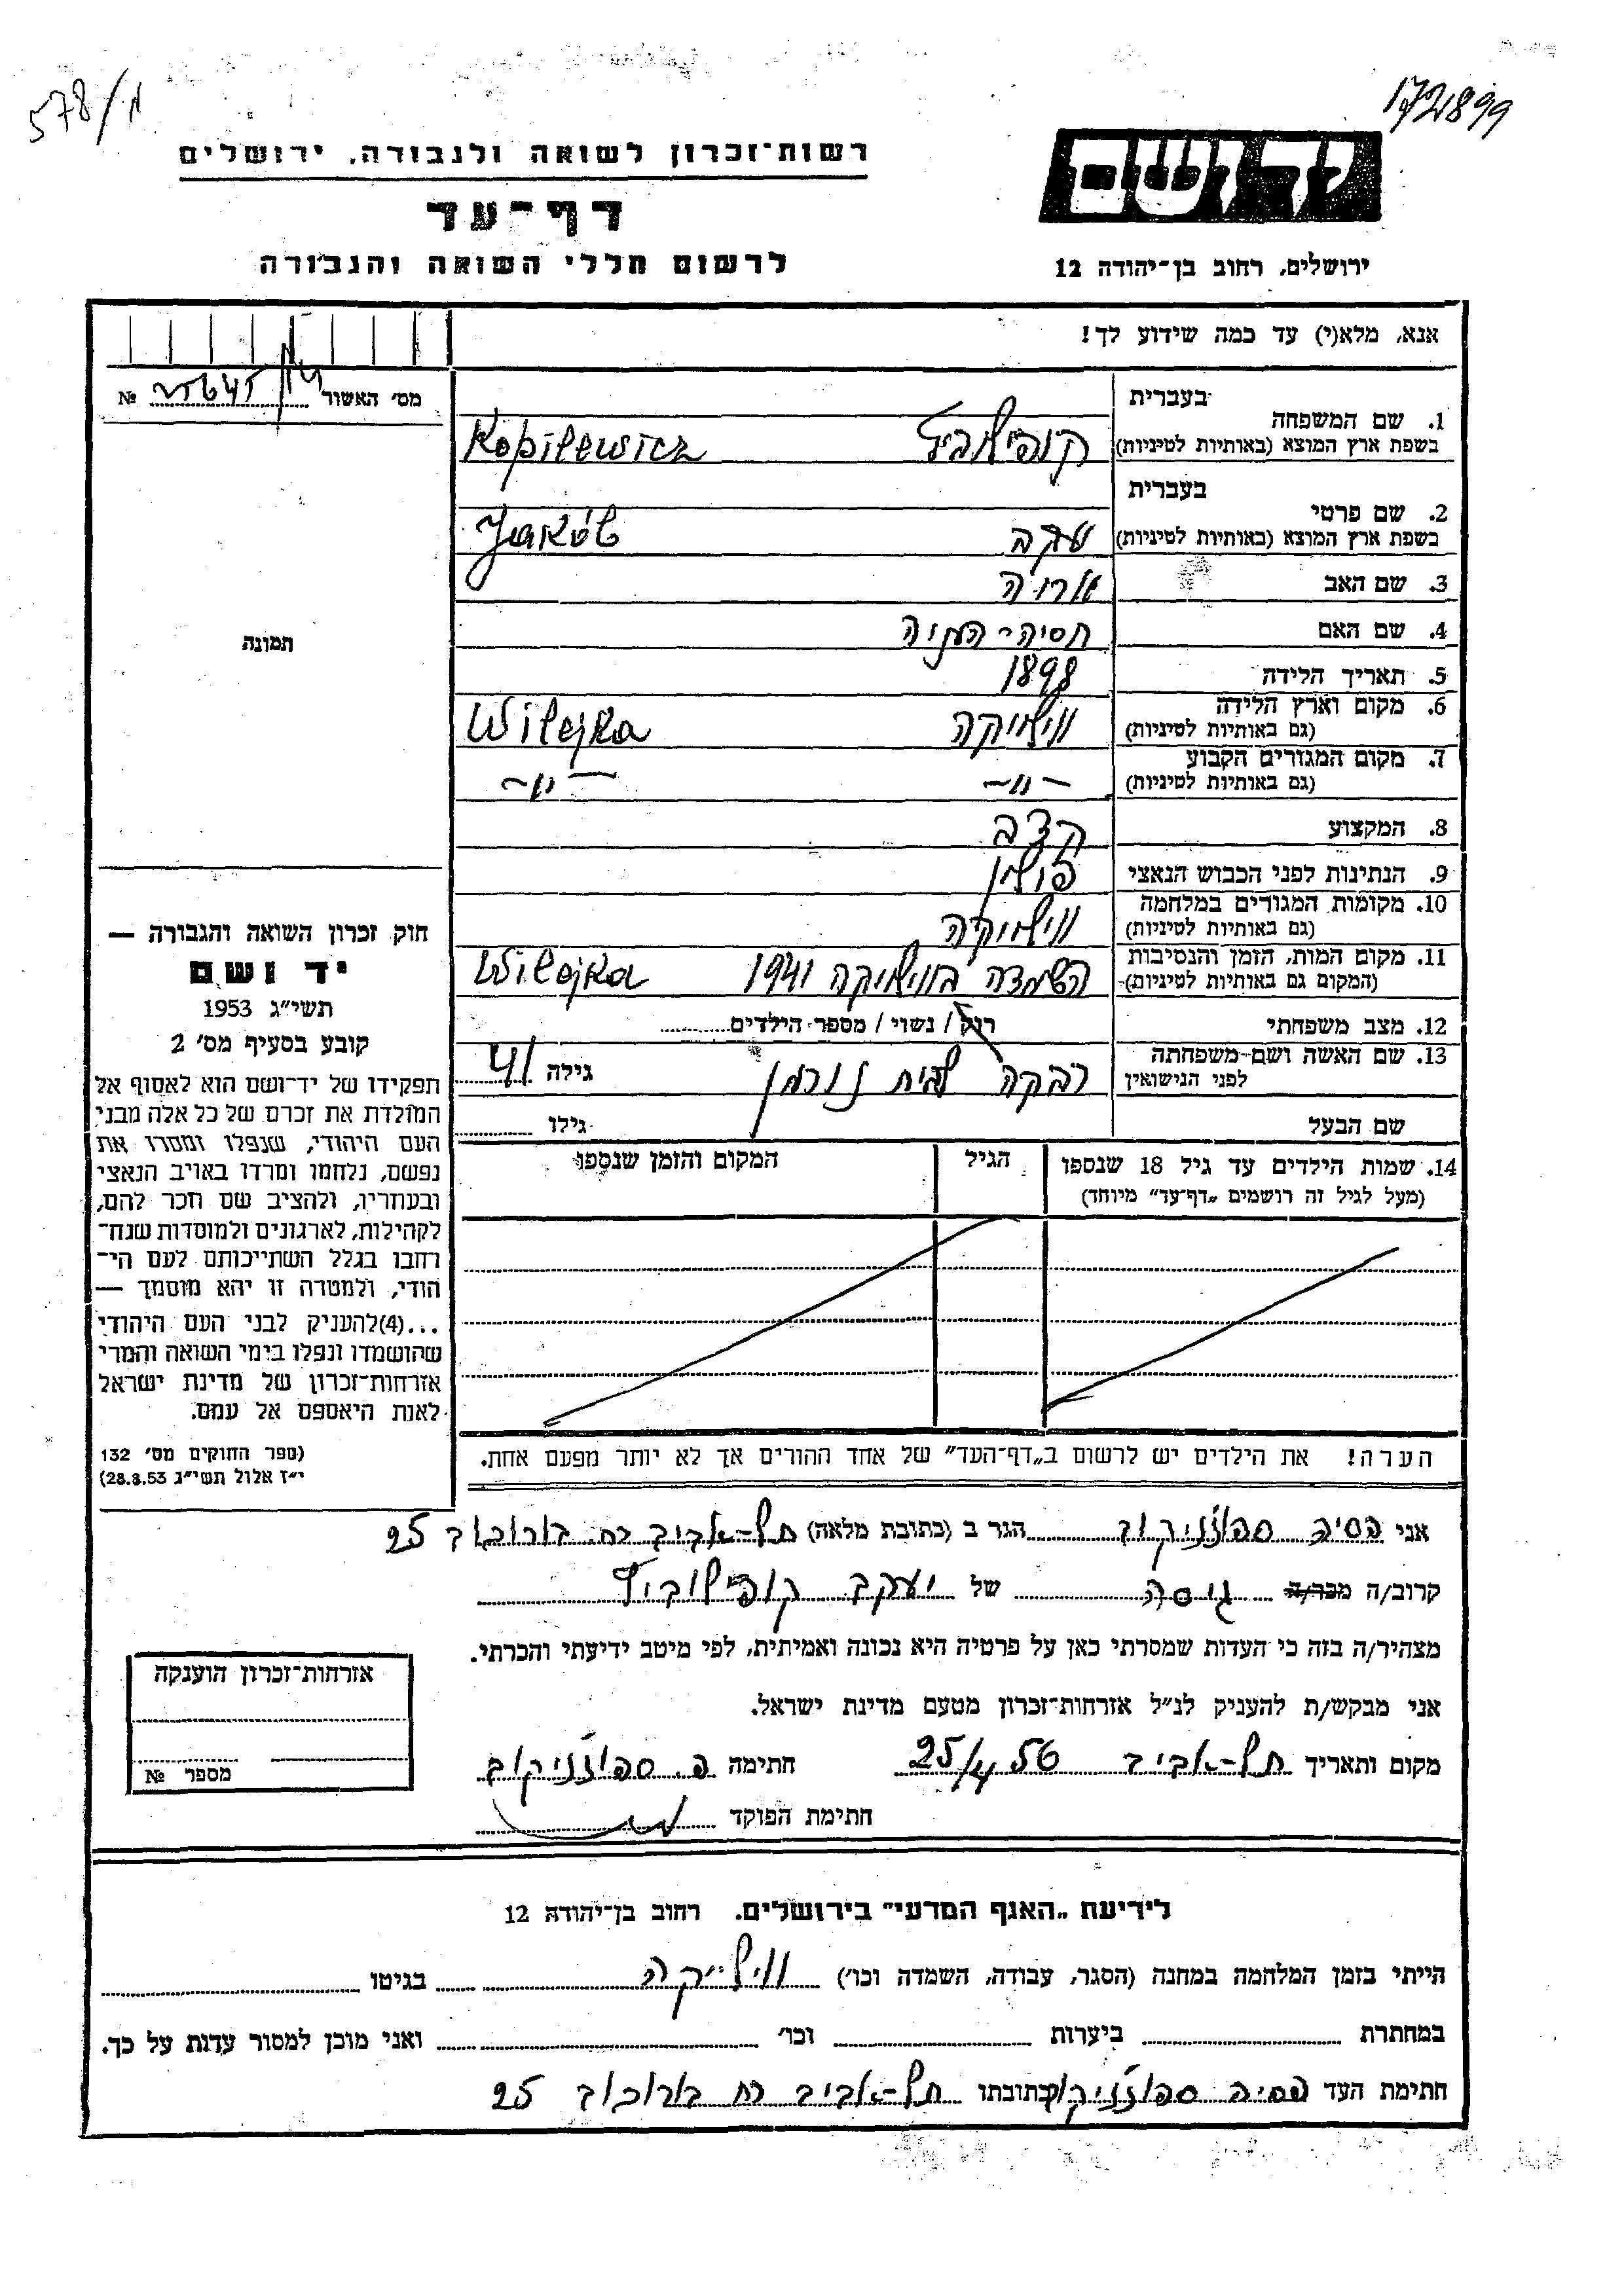 578/מ
172899
רשות-זכרון לשואה ולגבורה, ירושלים
דף-עד
לרשום חללי השואה והגבורה
יד ושם
ירושלים, רחוב בן-יהודה 12
אנא, מלא(י) עד כמה שידוע לך!
מס׳ האשור № 
בעברית
1. שם המשפחה
בשפת ארץ המוצא (באותיות לטיניות)
קופילוביץ Kopilewicz
בעברית
2. שם פרטי
בשפת ארץ המוצא (באותיות לטיניות)
יעקב Jakób
3. שם האב
4. שם האם חסיה-
5. תאריך הלידה 1898
6. מקום וארץ הלידה וילייקה Wilejka
(גם באותיות לטיניות)
7. מקום המגורים הקבוע —"— —"—
(גם באותיות לטיניות)
8. המקצוע קצב
9. הנתינות לפני הכבוש הנאצי פולין
10. מקומות המגורים במלחמה
(גם באותיות לטיניות) ווילייקה
11. מקום המות, הזמן והנסיבות
(המקום גם באותיות לטיניות) השמדה בווילייקה 1941 Wilejka
12. מצב משפחתי רווק / נשוי / מספר הילדים
13. שם האשה ושם-משפחתה
לפני הנישואין רבקה לבית גילה 41
שם הבעל גילו
14. שמות הילדים עד גיל 18 שנספו הגיל המקום והזמן שנספו
(מעל לגיל זה רושמים „דף-עד” מיוחד)
הערה! את הילדים יש לרשום ב„דף-העד” של אחד ההורים אך לא יותר מפעם אחת.
תמונה
חוק זכרון השואה והגבורה —
יד ושם
תשי״ג 1953
קובע בסעיף מס׳ 2
תפקידו של יד-ושם הוא לאסוף אל
המולדת את זכרם של כל אלה מבני
העם היהודי, שנפלו ומסרו את
נפשם, נלחמו ומרדו באויב הנאצי
ובעוזריו, ולהציב שם וזכר להם,
לקהילות, לארגונים ולמוסדות שנח-
רבו בגלל השתייכותם לעם הי-
הודי, ולמטרה זו יהא מוסמך —
...(4)להעניק לבני העם היהודי
שהושמדו ונפלו בימי השואה והמרי
אזרחות-זכרון של מדינת ישראל
לאות היאספם אל עמם.
(ספר החוקים מס׳ 132
י״ז אלול תשי״ג 28.8.53)
אני פסיה ספוז'ניקוב הגר ב (כתובת מלאה) תל-אביב רח בורוכוב 25
קרוב/ה מכר/ה גיסה של יעקב קופילוביץ
מצהיר/ה בזה כי העדות שמסרתי כאן על פרטיה היא נכונה ואמיתית, לפי מיטב ידיעתי והכרתי.
אני מבקש/ת להעניק לנ״ל אזרחות-זכרון מטעם מדינת ישראל.
מקום ותאריך תל-אביב 25/4 56 חתימה פ. ספוז'ניקוב
חתימת הפוקד
אזרחות-זכרון הוענקה
מספר №
לידיעת „האגף המדעי” בירושלים. רחוב בן-יהודה 12
הייתי בזמן המלחמה במחנה (הסגר, עבודה, השמדה וכו׳) ווילייקה בגיטו
במחתרת ביערות וכו׳ ואני מוכן למסור עדות על כך.
חתימת העד פסיה ספוז'ניקוב כתובתו תל-אביב רח בורוכוב 25